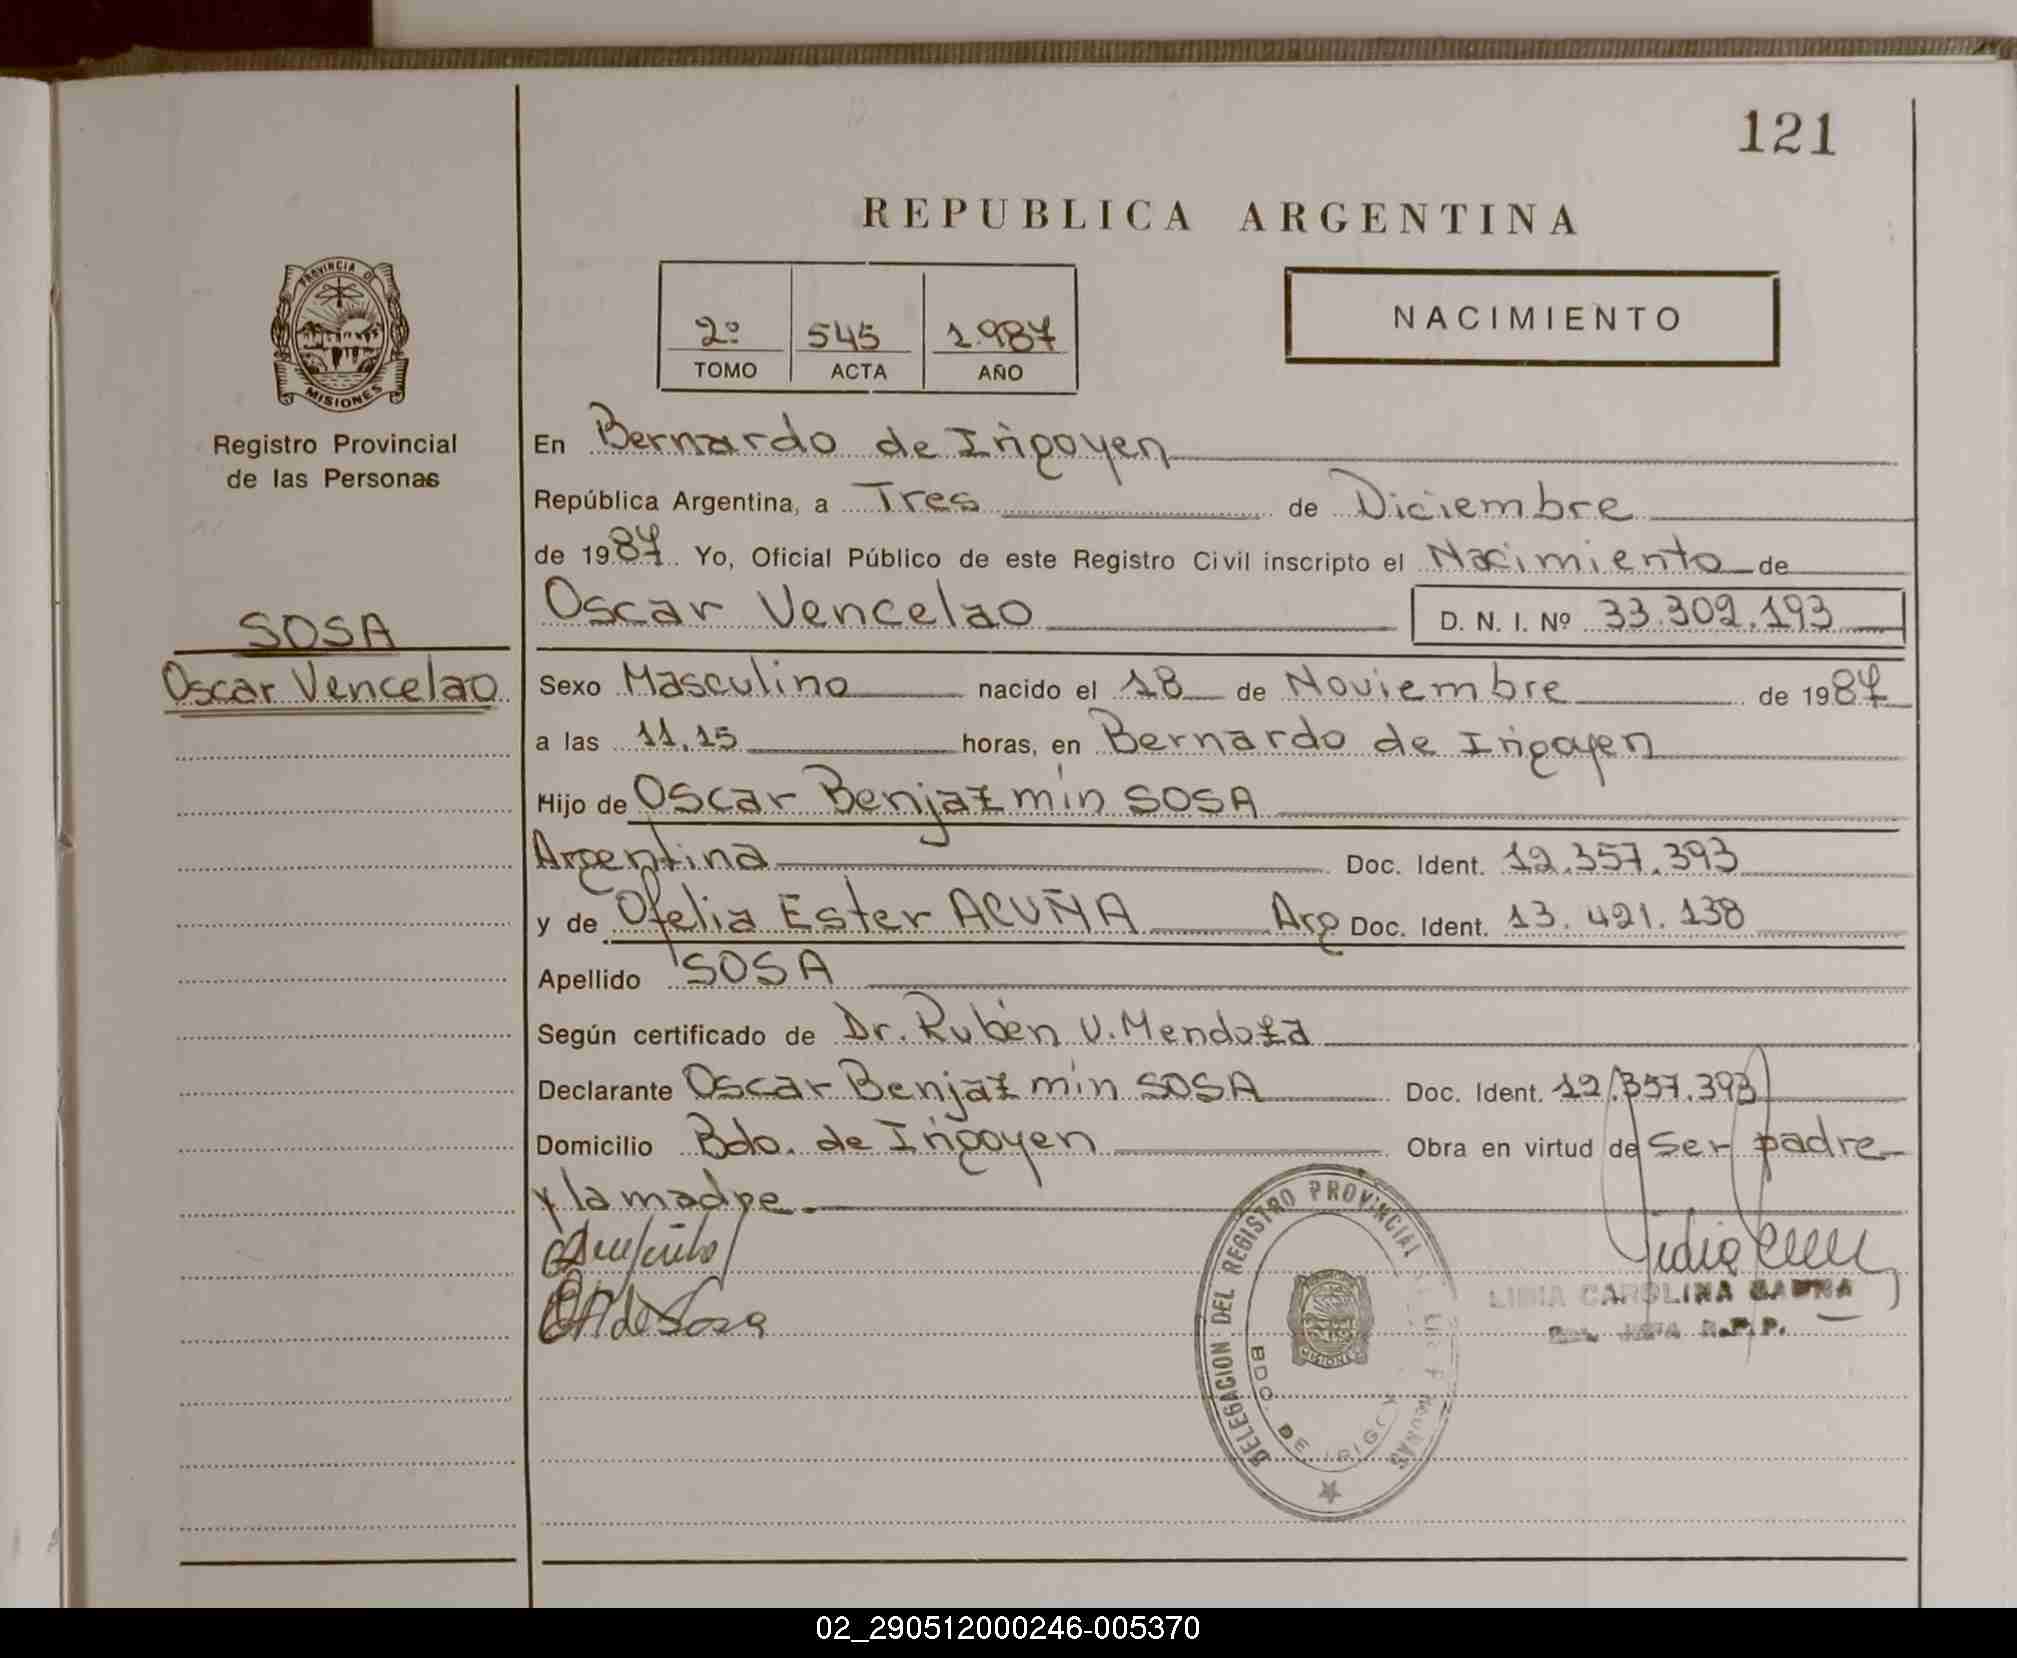 121
REPUBLICA ARGENTINA
PROVINCIA DE
MISIONES
Registro Provincial
de las Personas
2º 545 1.987
TOMO ACTA AÑO
NACIMIENTO
En Bernardo de Irigoyen
República Argentina, a Tres de Diciembre
de 1987. Yo, Oficial Público de este Registro Civil inscripto el Nacimiento de
Oscar Vencelao D. N. I. Nº 33.309.193
SOSA
Oscar Vencelao
Sexo Masculino nacido el 18 de Noviembre de 1987
a las 11,15 horas, en Bernardo de Irigoyen
Hijo de Oscar Benjazmín SOSA
Argentina Doc. Ident. 12.357.393
y de Ofelia Ester ACUÑA Arg Doc. Ident. 13.421.138
Apellido SOSA
Según certificado de Dr. Rubén U. Mendoza
Declarante Oscar Benjazmín SOSA Doc. Ident. 12.357.393
Domicilio Bdo. de Irigoyen Obra en virtud de ser padre
y la madre.
de Sosa
DELEGACION DEL REGISTRO PROVINCIAL DE LAS PERSONAS
BDO. DE IRIGOY
MISIONES
LIDIA CAROLINA
JEFA R.P.P.
02_290512000246-005370